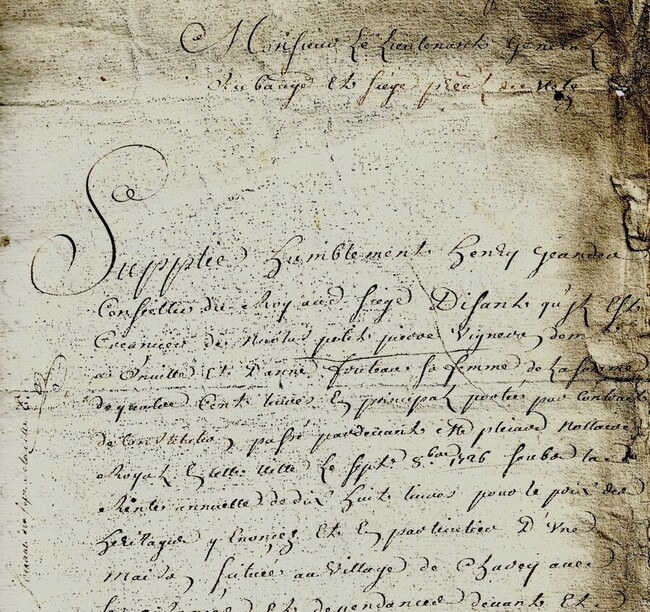 Monsieur Le Lieutenant General
Au et siege de
Supplie humblement henry
Conseiller du Roy aud siege Disant qu'il Est
Creancier de Nicolas petit pierre Vigneron dem
a Et D'anne sa femme de La somme
de quatre Cent livres En principal portée par Contract
de Constitution passé pardevant Me Nottaire
Royal En cette Ville Le sept 8.bre 1726 soubs la
Rente annuelle de dix huit livres pour le prix des
heritages y Enoncez Et En particulier D'Une
Maison scituée au Village de avec
Et dependances devant Et